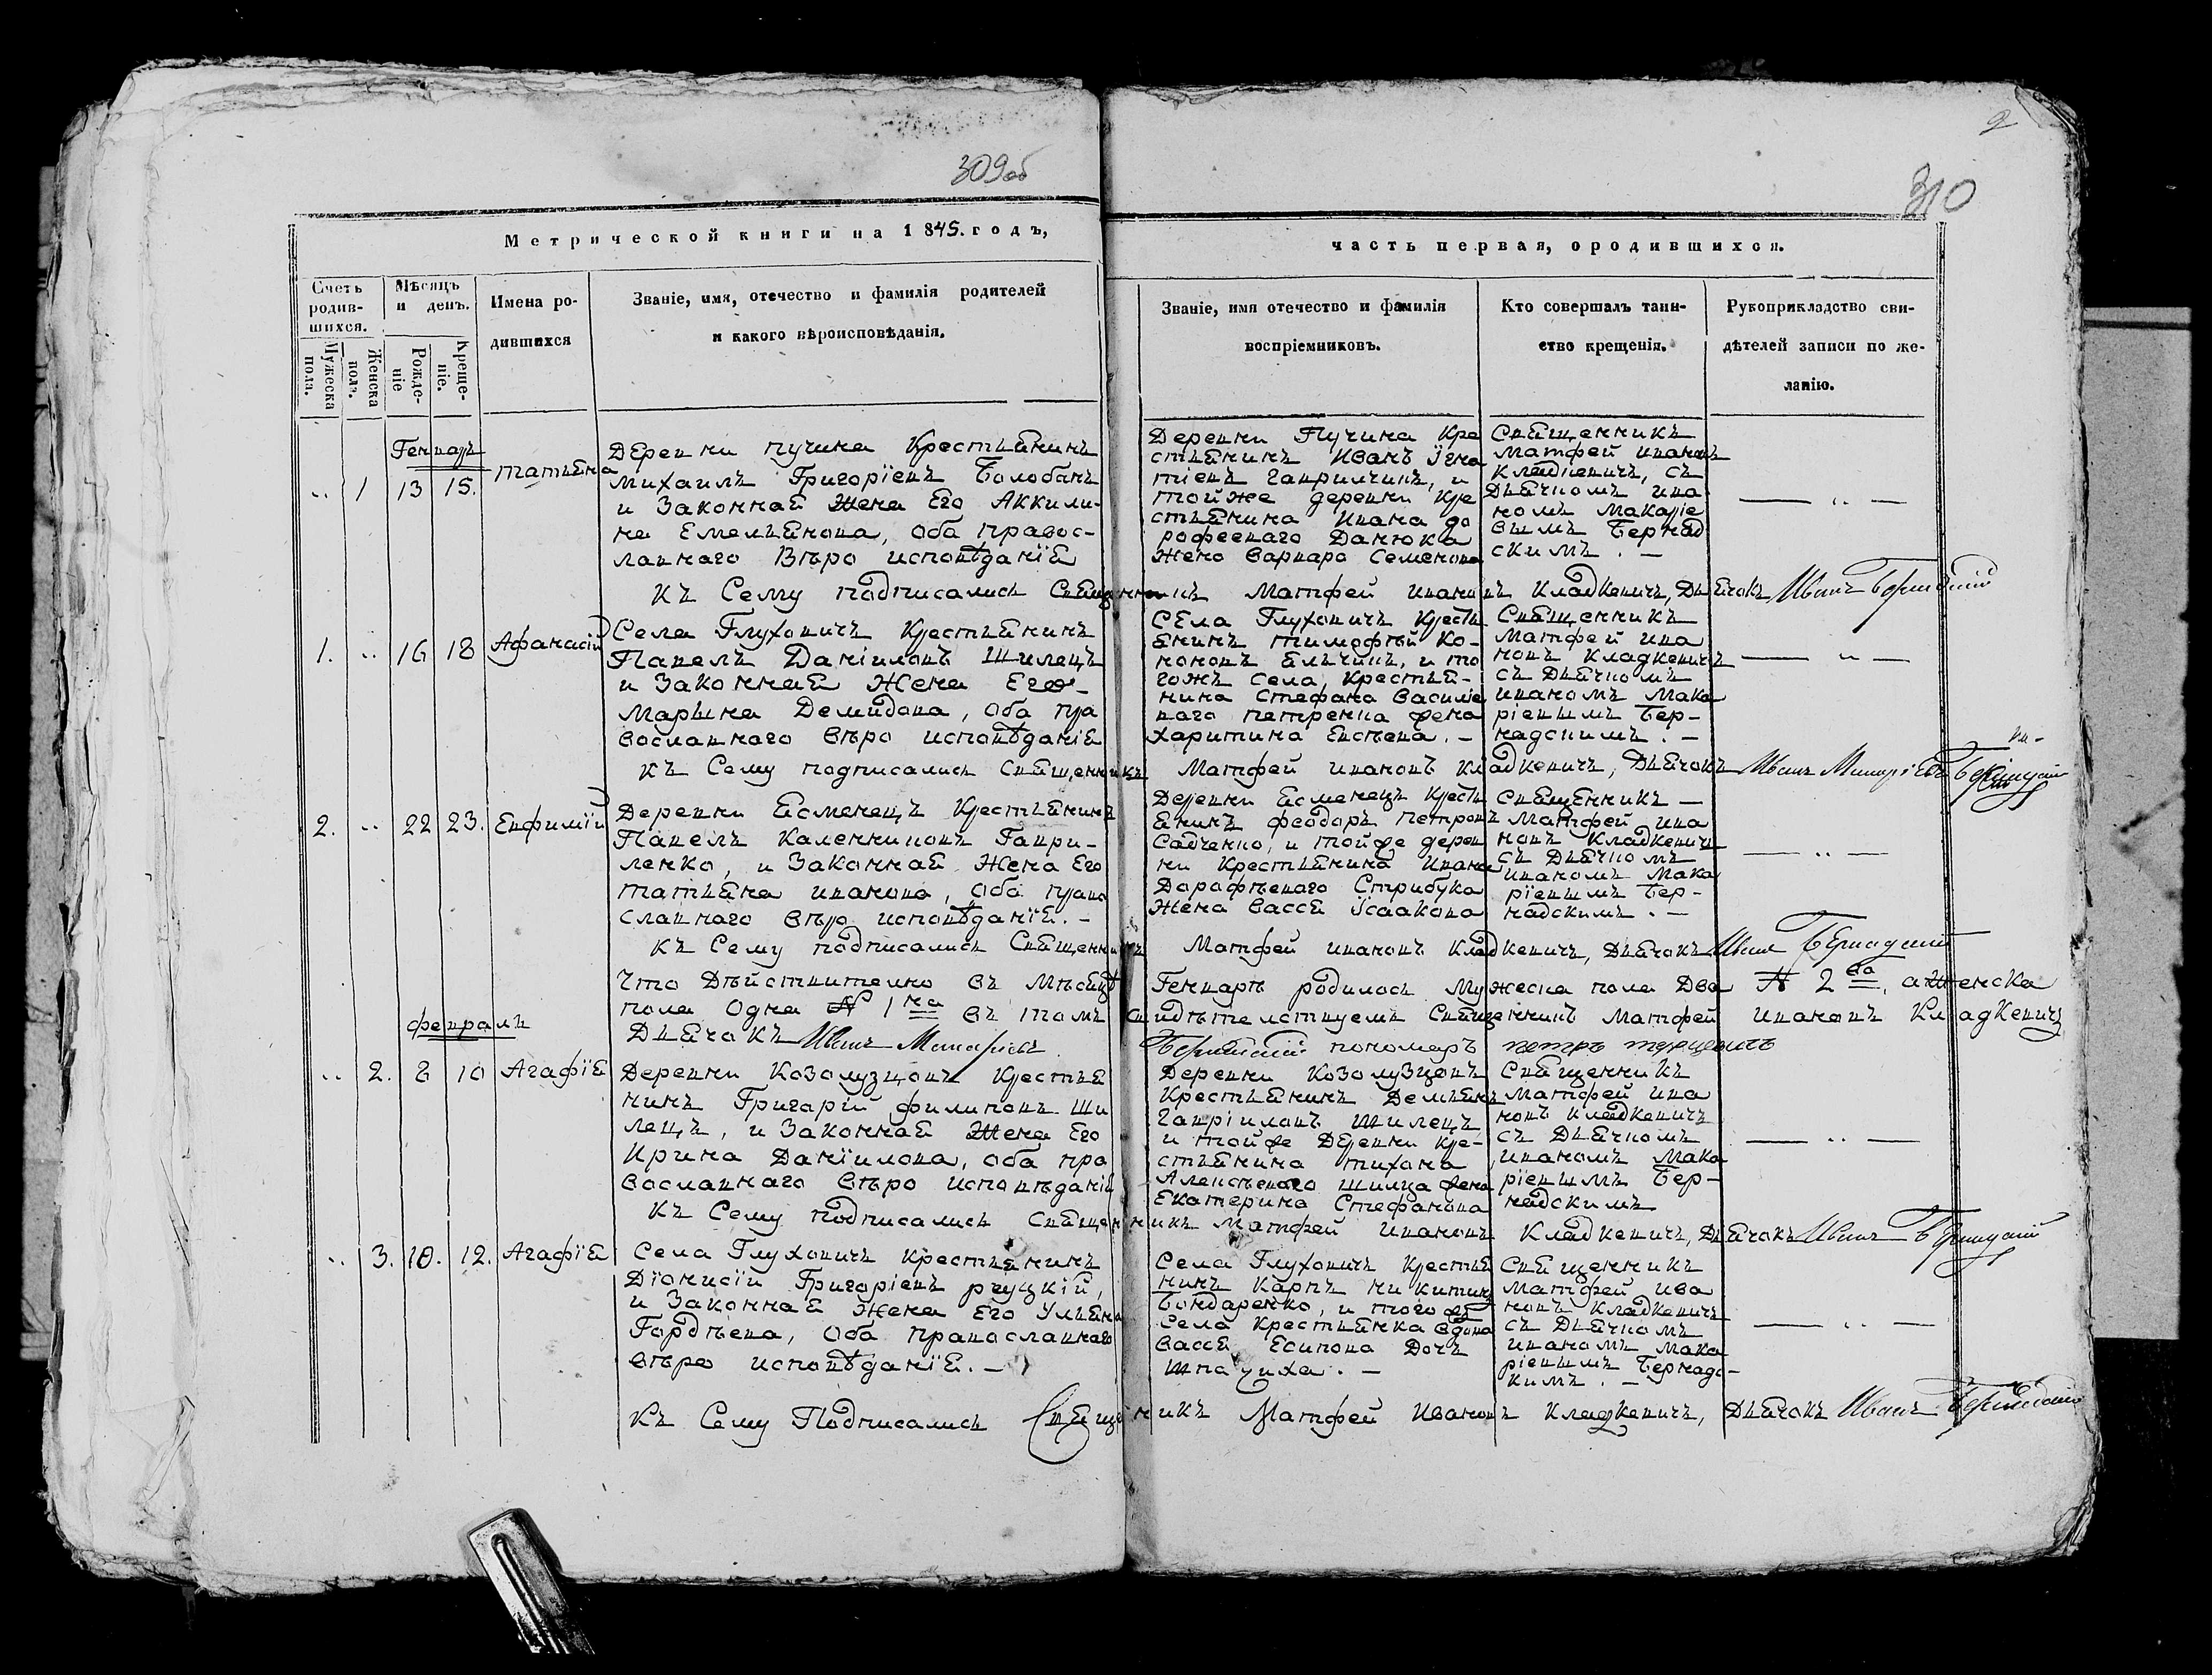 309об
2
310
Метрической книги на 1845. годъ,
часть первая, ородившихся.
Счетъ родив-шихся.
Мужеска пола.
Женска пола.
Мѣсяцъ и день.
Рожде-ніе
Креще-ніе.
Имена ро-
дившихся
Званіе, имя, отечество и фамилія родителей
и какого вѣроисповѣданія.
Званіе, имя отечество и фамилія
воспріемниковъ.
Кто совершалъ таин-
ство крещенія.
Рукоприкладство сви-
дѣтелей записи по же-
ланію.
Генваръ
„ 1 13 15. Татьяна
Деревни Пучина Крестьянинъ
Михаилъ Григоріевъ Болобанъ
и Законная Жена Его Аккили-
на Емельянова, оба правос-
лавнаго Вѣро исповѣданія
Деревни Пучина Кре
стьянинъ Иванъ Ігна
тіевъ Гаврилчикъ, и
тойже деревни Кре
стьянина Ивана до
рофеевого Данюка
Жена Варвара Семенова
Священникъ
Матфей Ивановъ
Кладкевичъ, съ
Дьячкомъ Ива
номъ Макаріе
вымъ Бернад
скимъ . —
— „ —
Къ Сему подписались Священникъ Матфей Ивановъ Кладкевичъ, Дьячокъ Иванъ Бернадскій
1. „ 16 18 Афанасій
Села Глуховичъ Крестьянинъ
Павелъ Даніиловъ Шилецъ
и Законная Жена Его-
Марына Демидова, оба пра
вославнаго вѣро исповѣданія
Села Глуховичъ Кресть
янинъ Тимофѣй Ко-
ноновъ Ельчинъ, и то
гожъ села, крестья-
нина Стефана Василіе
ваго Петренка жена
Харитина Евсѣева. —
Священникъ
Матфей Ива
новъ Кладкевичъ
съ Дьячкомъ
Иваномъ Мака
ріевымъ Бер-
надскимъ . —
— „ —
Къ Сему подписались Священникъ Матфей Ивановъ Кладкевичъ, Дьячокъ Иванъ Макаріевъ Бернадскій
2. „ 22 23. Евфимій
Деревни Ясменецъ Крестьянинъ
Павелъ Каленниковъ Гаври-
ленко, и Законная Жена Его
Татьяна Иванова, оба право
славнаго вѣро исповѣданія. —
Деревни Ясменецъ Кресть
янинъ Феодоръ Петровъ
Савченко, и тойже дерев
ни Крестьянина Ивана
Дарафѣеваго Стрибука
Жена Васса Ісаакова
Священникъ —
Матфей Ива
новъ Кладкевичъ
съ Дьячкомъ
Иваномъ Мака
ріевымъ Бер-
надскимъ . —
— „ —
Къ Сему подписались Священникъ Матфей Ивановъ Кладкевичъ, Дьячокъ Иванъ Бернадскій
Что Дѣйствително въ Мѣсяцѣ Генварѣ родилось Мужеска пола Два № 2 ва, а Женска
пола Одна № 1 на въ томъ свидѣтелствуемъ Священникъ Матфей Ивановъ Кладкевичъ
Дьячокъ Иванъ Макаріевъ Бернадскій пономаръ Петръ
Февраль
„ 2. 8 10 Агафія
Деревни Козолузцовъ Крестья
нинъ Григорій Филиповъ Ши
лецъ, и Законная Жена Его
Ирина Даніилова, оба пра
вославнаго вѣро исповѣданія
Деревни Козолузцовъ
Крестьянинъ Демьянъ
Гавріиловъ Шилецъ
и тойже Деревни Кре-
стьянина Тихона
Алексѣевого Шилца жена
Екатерина Стефанова
Священникъ
Матфей Ива
новъ Кладкевичъ
съ Дьячкомъ
Иваномъ Мака
ріевымъ Бер-
надскимъ
— „ —
Къ Сему подписались Священникъ Матфей Ивановъ Кладкевичъ, Дьячокъ Иванъ Бернадскій
„ 3. 10. 12. Агафія
Села Глуховичъ Крестьянинъ
Діонисіи Григоріевъ Рауцкій,
и Законная Жена Его Ульяна
Гордѣева, Оба Православнаго
вѣро исповѣданія. —
Села Глуховичъ Крестья
нинъ Карпъ Никитинъ
Бондаренко, и того жъ
Села Крестьянка вдова
Васса Есипова Дочъ
Шпачиха. —
Священникъ
Матфей Ива
новъ Кладкевичъ
съ Дьячкомъ
Иваномъ Мака
ріевымъ Бернадс-
кимъ . —
— „ —
Къ Сему Подписались Священникъ Матфей Ивановъ Кладкевичъ, Дьячокъ Иванъ Бернадскій